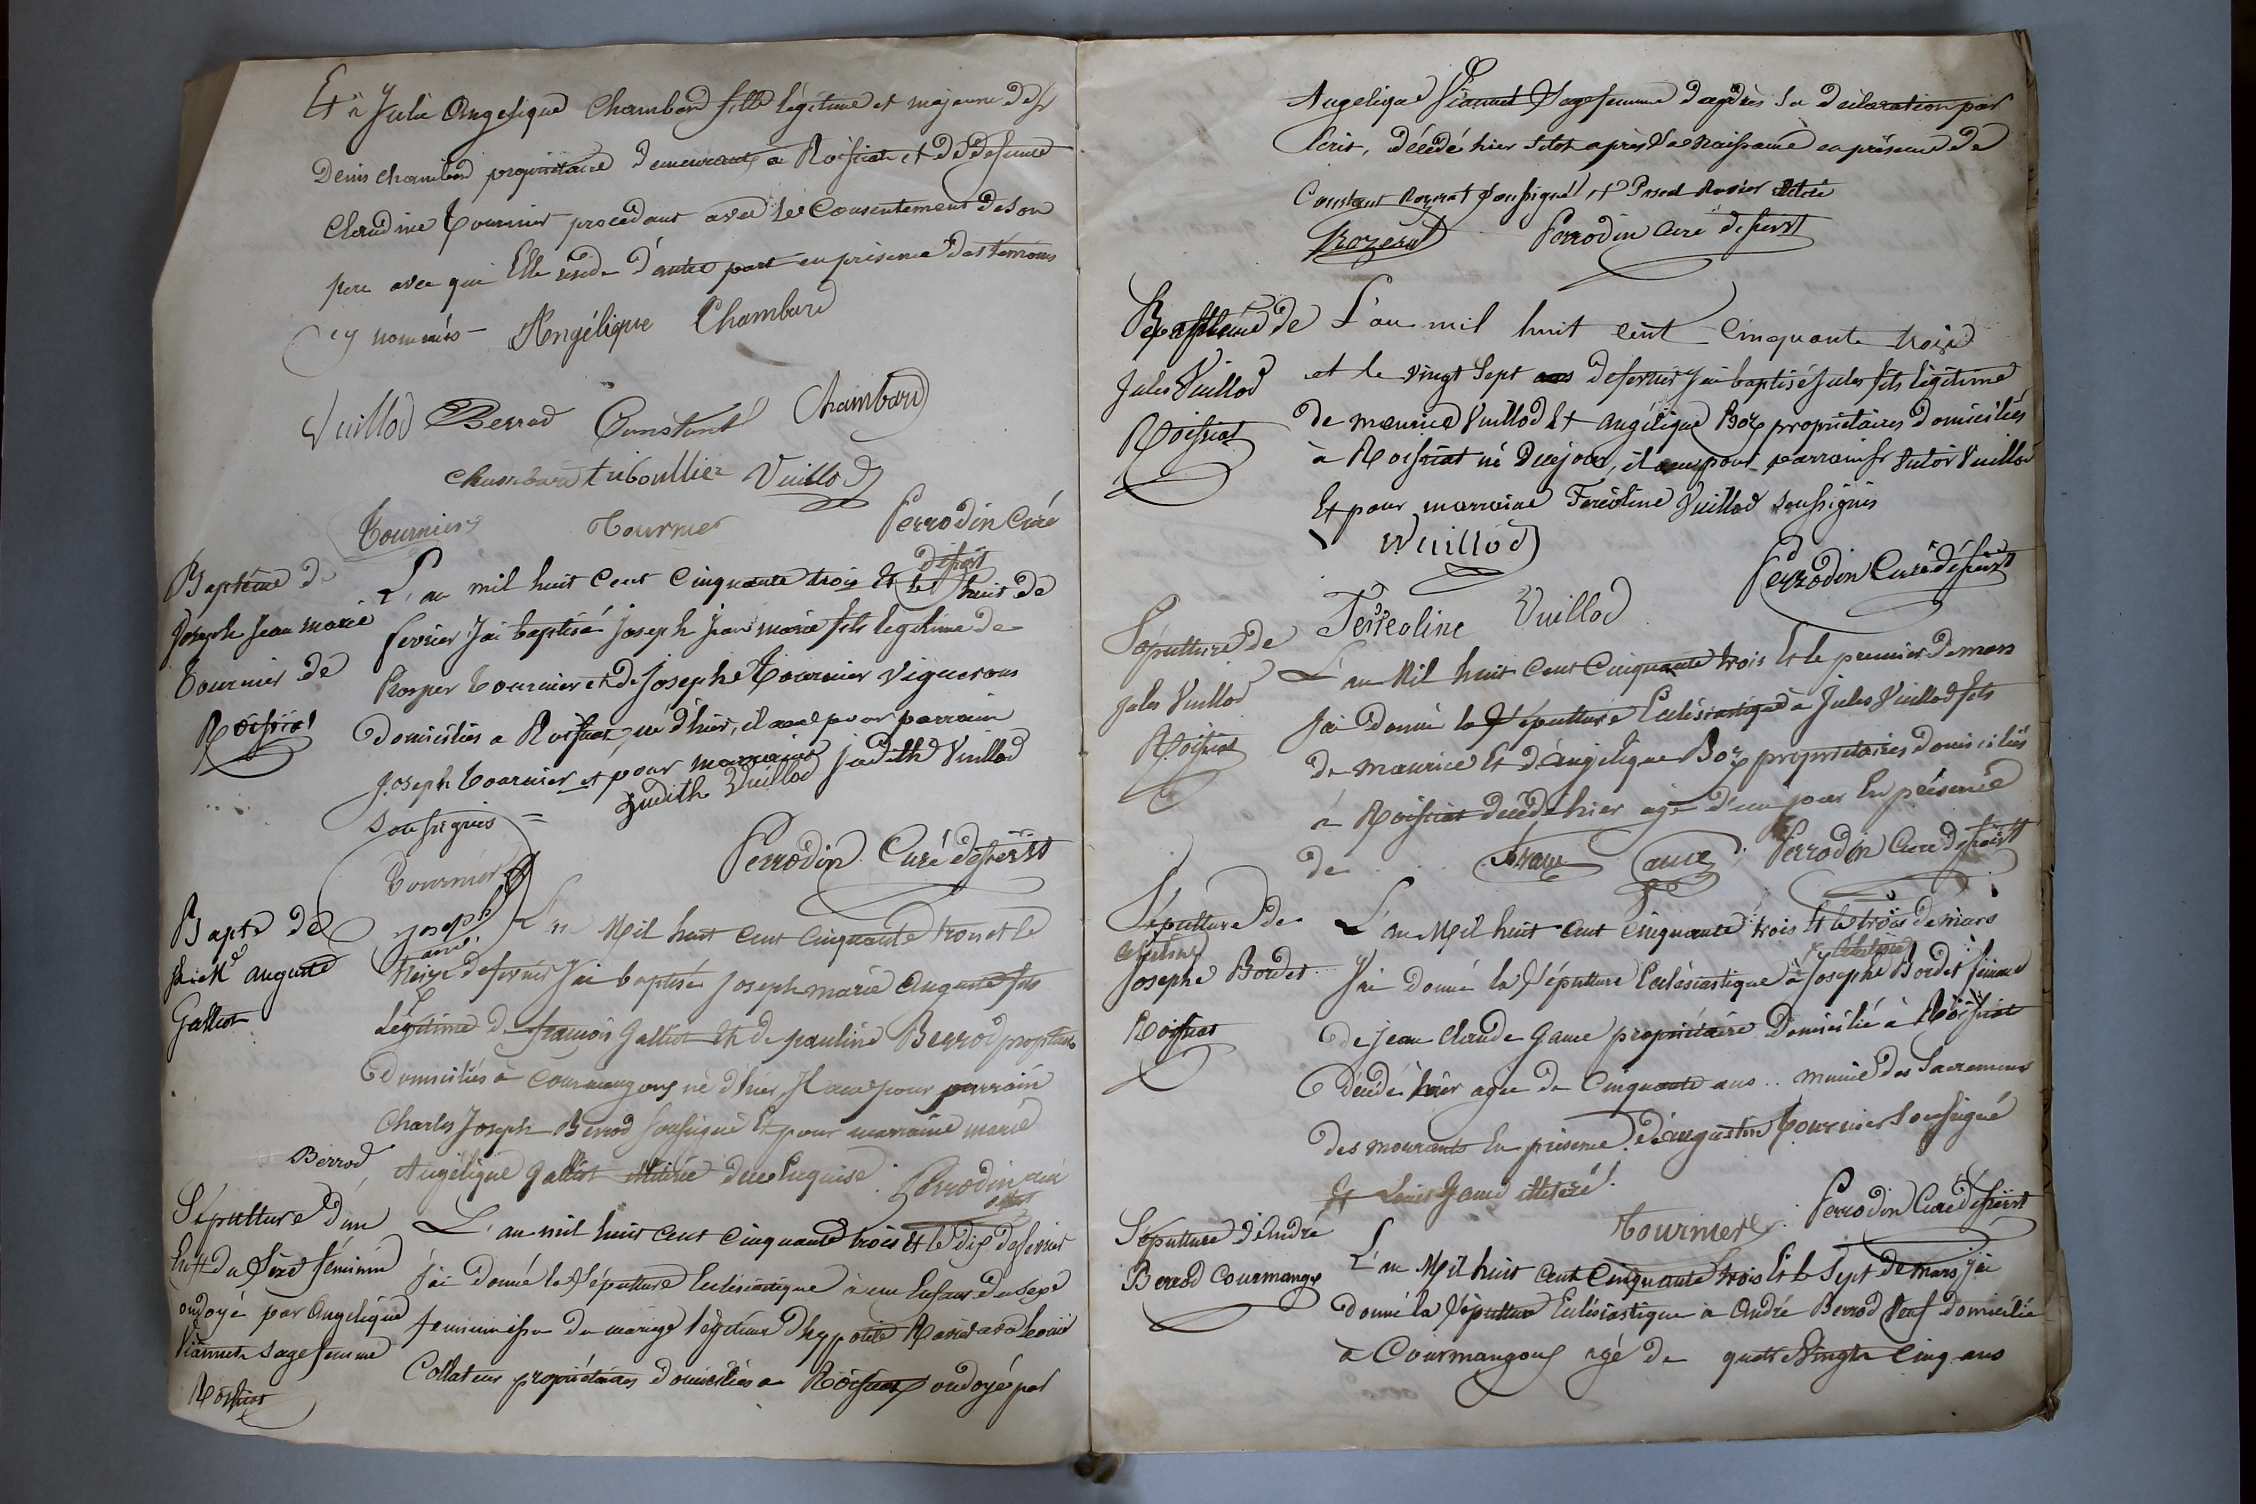 Et à Julie Angelique Chambard fille légitime et majeure de
Denis chambard propriétaire demeurants a Roissiat et de defunte
Claudine Tournier procedant avec le Consentement de son
pere avec qui Elle reside d'autre part en presence des témoins
cy nommés Angélique Chambard
Vuillod Berrod Constant Chambard
chambard triboullier Vuillod
Tournier Tournier Perrodin Curé
Baptême de
Joseph Jean marie
Tournier de
Roissiat
L'an mil huit Cent Cinquante trois Et le huit de
fevrier J'ai baptisé joseph jean marie fils legitime de
Prosper Tournier et de josephe Tournier vignerons
domiciliés a Roissiat, né d'hier, il a eu pour parrain
Joseph Tournier et pour marraine judith Vuillod
Soussignés = Judith Vuillod
Tournier Perrodin Curé
joseph
Bapt. de
auguste
Galliot
L'an Mil huit Cent Cinquante trois et le
treize de fevrier J'ai baptisé Joseph marie Auguste fils
Légitime de francois Galliot Et de pauline Berrod
Domiciliés à Courmangoux né d'hier, Il a eu pour parrain
Charles Joseph Berrod soussigné Et pour marraine marie
Angélique Galliot de ce Enquise. Perrodin curé
Berrod
Sépulture d'un
Enft du Sexe féminin
ondoyé par Angelique
Viannet sage femme
Roissiat
L'an mil huit Cent Cinquante trois Et le dix de fevrier
j'ai donné la Sépulture Ecclésiastique à un Enfant du Sexe
feminin issu du mariage légitime d'hypolite Ravier avec
propriétaires domiciliés a Roissiat ondoyé par
Angelique Viannet Sage femme d'après sa déclaration par
Ecrit, décédé hier sitot après sa naissance en présence de
Constant Rozerat soussigné et Ravier
Rozerat Perrodin curé
Baptême de
Jules Vuillod
Roissiat
L'an mil huit cent cinquante trois
et le vingt Sept de fevrier J'ai baptisé Jules fils légitime
de maurice Vuillod Et angélique Boz propriétaires domiciliés
à Roissiat né Dece jour, il a eu pour parrain Victor Vuillod
Et pour marraine Ferréoline Vuillod soussignés
Vuillod
Perrodin Curé
Ferreoline Vuillod
Sépulture de
Jules Vuillod
Roissiat
L'an Mil huit Cent Cinquante trois Et le premier de mars
J'ai donné la Sépulture Ecclésiastique à Jules Vuillod fils
de maurice Et d'angelique Boz propriétaires domiciliés
à Roissiat decédé hier agé d'un jour En présence
de Perrodin Curé
Sépulture de
Josephe Bordet
Roissiat
L'an Mil huit Cent Cinquante trois Et le trois de mars
J'ai donné la Sépulture Ecclésiastique à Josephe Bordet femme
de jean claude game propriétaire Domicilié à Roissiat
Décédé hier agée de Cinquante ans .. munie des Sacremens
des mourants En présence d'augustin Tournier Soussigné
Et Louis Game illetéré.
Tournier Perrodin Curé
Sépulture d'André
Berrod Courmangx
L'an Mil huit Cent Cinquante trois Et le Sept de mars j'ai
donné la Sépulture Ecclésiastique à André Berrod Veuf domicilié
a Courmangoux agé de quatre Vingts Cinq ans